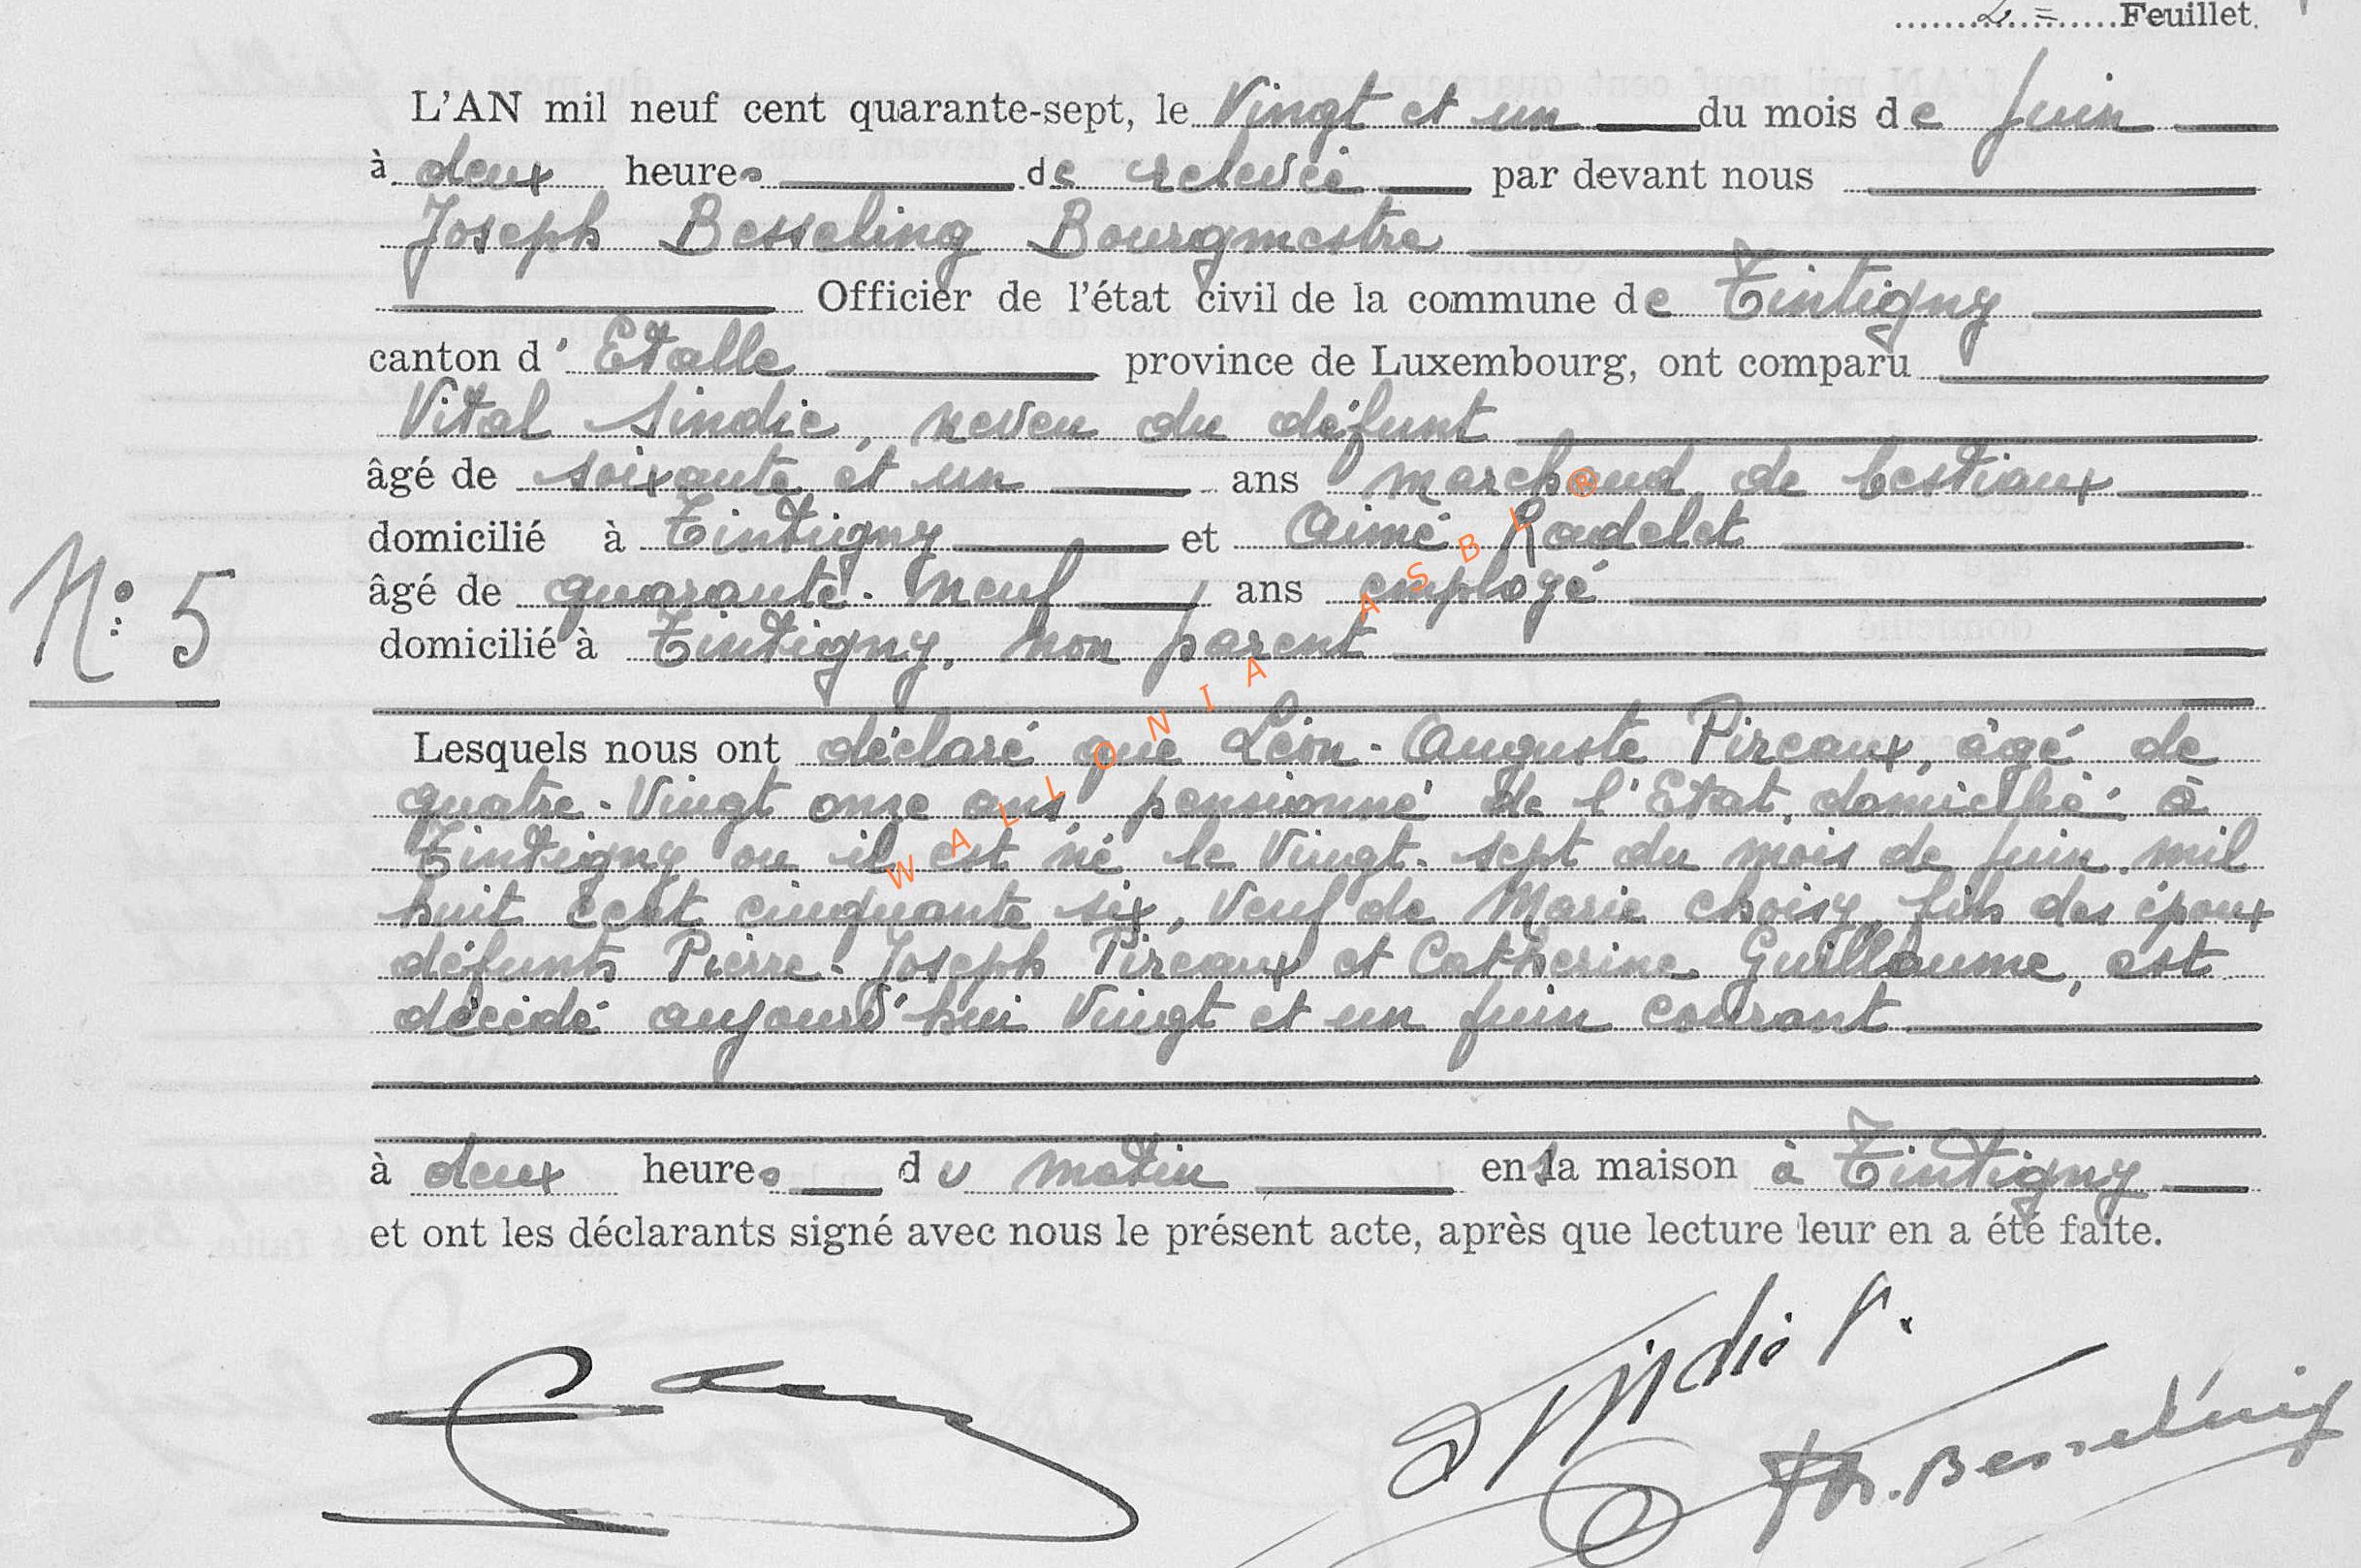 2= Feuillet.
L'AN mil neuf cent quarante-sept, le Vingt et un du mois de Juin
à deux heures de relevée par devant nous
Joseph Besseling Bourgmestre
Officier de l'état civil de la commune de Tintigny
canton d'Etalle province de Luxembourg, ont comparu
Vital Sindic, neveu du défunt
âgé de soixante et un ans marchand de bestiaux
domicilié à Tintigny et Aimé Rodelet
N° 5
âgé de quarante-neuf ans employé
domicilié à Tintigny, non parent
Lesquels nous ont déclaré que Léon-Auguste Pireaux, âgé de
quatre-Vingt onze ans, pensionné de l'Etat, domicilié à
Tintigny ou il est né le Vingt-sept du mois de Juin mil
huit cent cinquante six, Veuf de Marie choisy, fils des époux
défunts Pierre-Joseph Pireaux et Catherine Guillaume, est
décédé aujourd'hui Vingt et un juin courant
à deux heures du matin en sa maison à Tintigny
et ont les déclarants signé avec nous le présent acte, après que lecture leur en a été faite.
Sindic V.
Jh. Besseling
WALLONIA ASBL ®